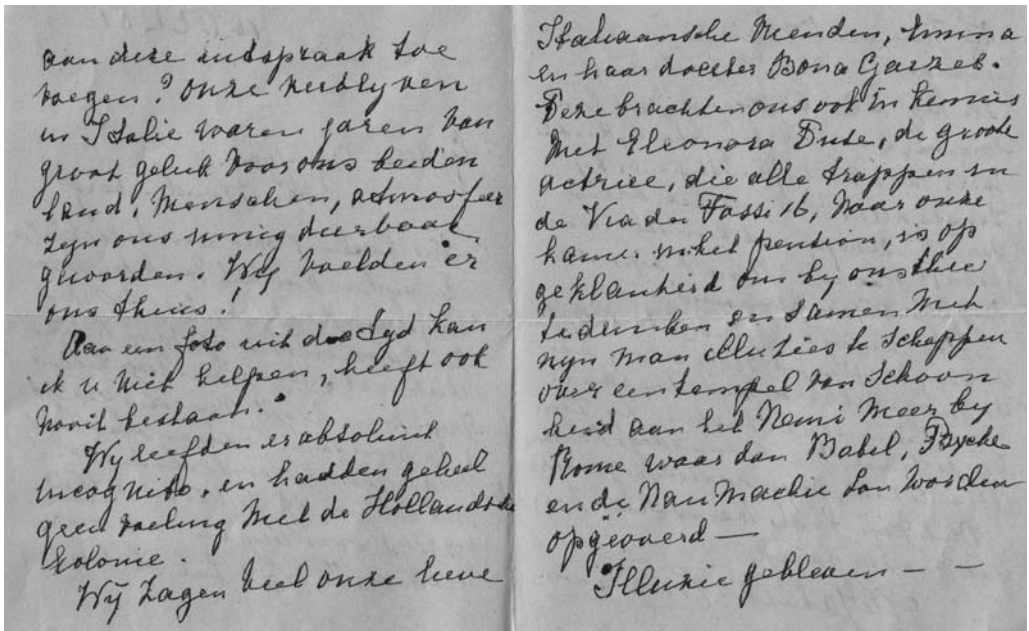 aan deze uitspraak toe
voegen? Onze verblyven
in Italie waren jaren van
groot geluk voor ons beiden
land, menschen, atmosfeer
zyn ons innig dierbaar
geworden. Wy voelden er
ons thuis!
Aan een foto uit die tyd kan
ik u niet helpen, heeft ook
nooit bestaan.
Wy leefden er absoluut
incognito, en hadden geheel
geen voeling met de Hollandsche
kolonie.
Wy zagen veel onze lieve
Italiaansche vrienden, Emma
en haar dochter Bona
Deze brachten ons ook in kennis
met Eleonora Duse, de groote
actrice, die alle trappen in
de Via dei Fossi 16, naar onze
kamer in het pension, is op
geklauterd om by ons thee
te drinken en samen met
myn man illusies te scheppen
over een tempel van schoon
heid aan het Nemi meer by
Rome waar dan Babel, Psyche
en de Naumachie zou worden
opgevoerd —
Illuzie gebleven — —